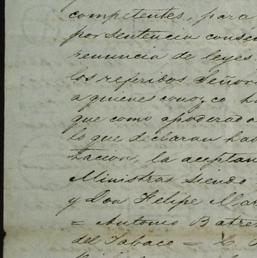 competentes, para
por sentencia conse
renuncia de leyes
los referidos Señor
a quienes conozco h
que como apoderado
lo que declaran hab
tacion, la aceptan
Ministras Siendo
y Don Felipe Mar
= Antonio Batres
del Tabaco =